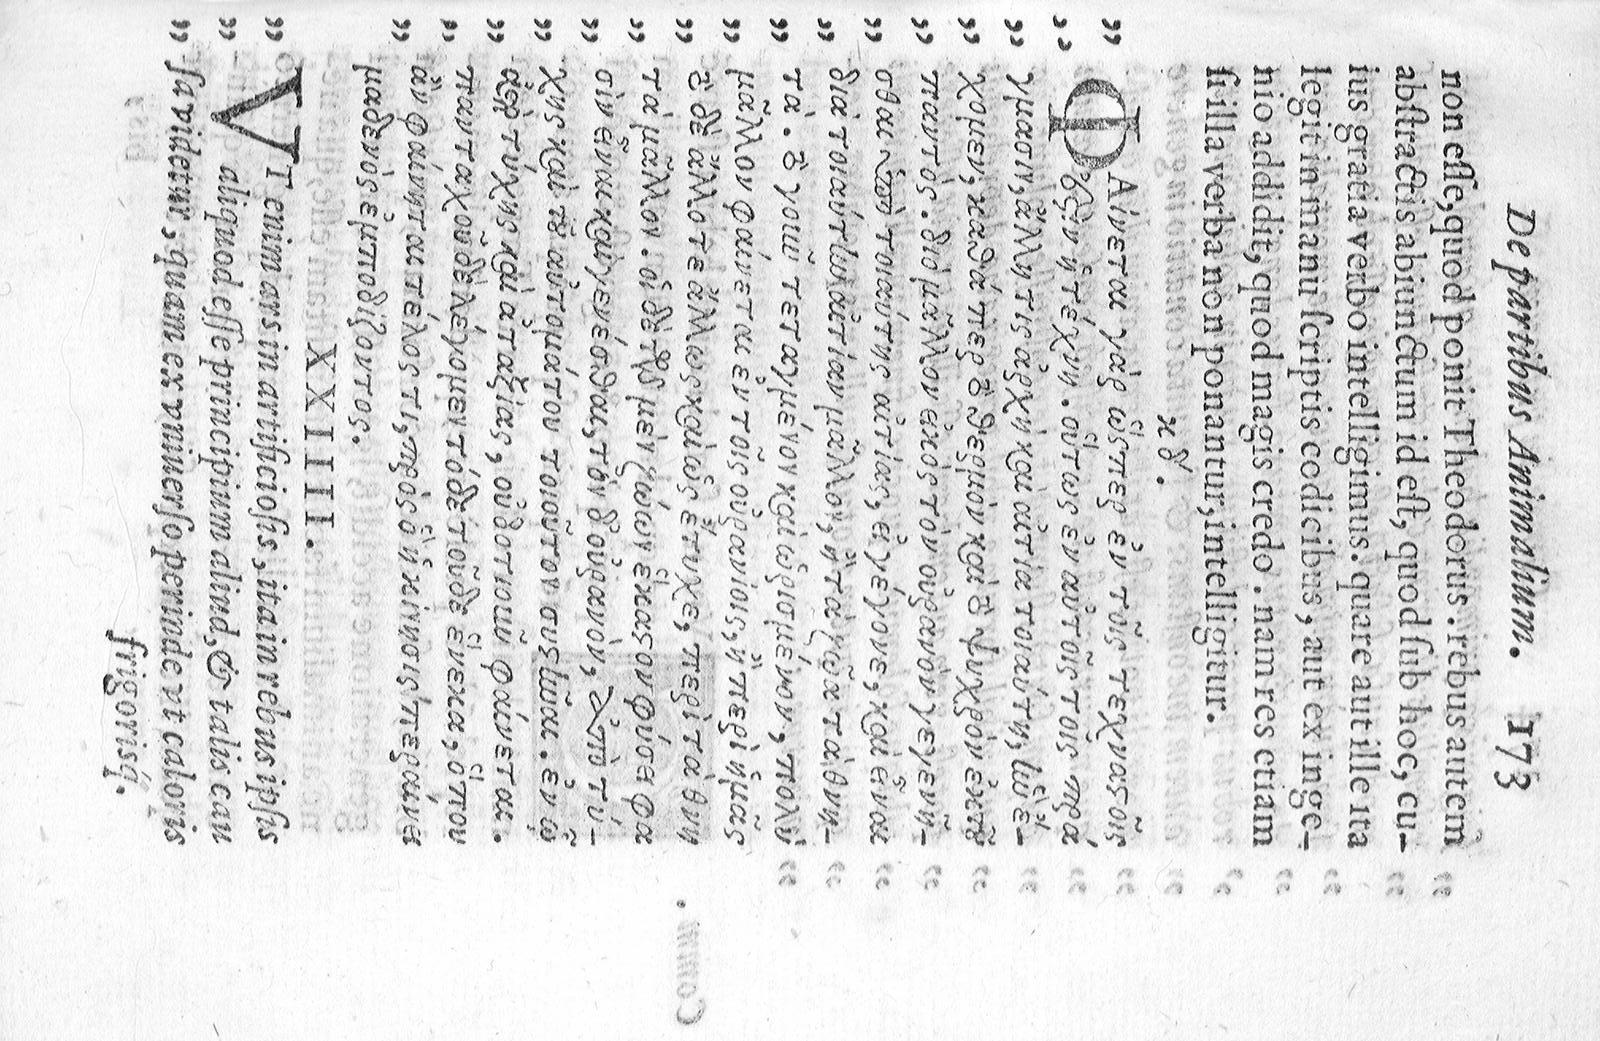 De partibus Animalium. 173
non esse, quod ponit Theodorus. rebus autem
abstractis abiunctum id est, quod sub hoc, cu-
ius gratia verbo intelligimus. quare aut ille ita
legit in manu scriptis codicibus, aut ex inge-
nio addidit, quod magis credo. nam res etiam
si illa verba non ponantur, intelligitur.
κδ´.
„ ΦΑίνεται γὰρ ὥσπερ ἐν τοῖς τεχναστοῖς
„ ἐστὶν ἡ τέχνη. οὕτως ἐν αὐτοῖς τοῖς πρά
„ γμασιν, ἄλλη τις ἀρχὴ καὶ αἰτία τοιαύτη, ἣν ἔ-
„ χομεν, καθάπερ τὸ θερμὸν καὶ τὸ ψυχρὸν ἐκ τοῦ
„ παντός. διὸ μᾶλλον εἰκὸς τὸν οὐρανὸν γεγενῆ-
„ σθαι ὑπὸ τοιαύτης αἰτίας, εἰ γέγονε, καὶ εἶναι
„ διὰ τοιαύτην αἰτίαν μᾶλλον, ἢ τὰ ζῷα τὰ θνη-
„ τά. τὸ γοῦν τεταγμένον καὶ ὡρισμένον, πολὺ
„ μᾶλλον φαίνεται ἐν τοῖς οὐρανίοις, ἢ περὶ ἡμᾶς
„ τὸ δὲ ἄλλοτε ἄλλως καὶ ὡς ἔτυχε, περὶ τὰ θνη
„ τὰ μᾶλλον. οἱ δὲ τῶν μὲν ζῴων ἕκαστον φύσει φα
„ σὶν εἶναι καὶ γενέσθαι, τὸν δ᾽ οὐρανὸν, ἀπὸ τύ-
„ χης καὶ τοῦ αὐτομάτου τοιοῦτον συστῆναι. ἐν ᾧ
„ ἀπὸ τύχης καὶ ἀταξίας, οὐδοτιοῦν φαίνεται.
„ πανταχοῦ δὲ λέγομεν τόδε τοῦδε εἵνεκα, ὅπου
„ ἂν φαίνηται τέλος τι, πρὸς ὃ ἡ κίνησις περαίνει
μηδενὸς ἐμποδίζοντος.
XXIIII.
„ VT enim ars in artificiosis, ita in rebus ipsis
„ aliquod esse principium aliud, & talis cau
„ sa videtur, quam ex vniuerso perinde vt caloris
frigorisq́.